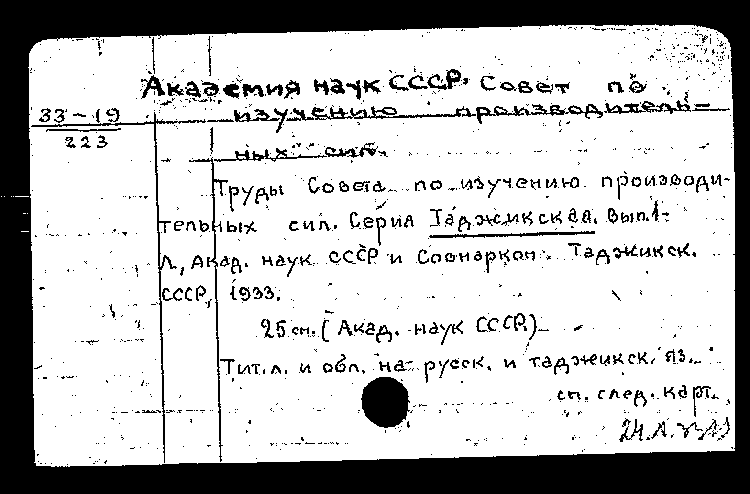 Академия наук СССР. Совет по
33-19
изучению производитель-
223
ных сил.
Труды Совета по изучению производи-
тельных сил. Серия Таджикская. Вып.1-
Л., Акад. наук СССР и Совнарком Таджикск.
ССР, 1933.
25 см. (Акад. наук СССР)
Тит. л. и обл. на русск. и таджикск. яз.
см. след. карт.